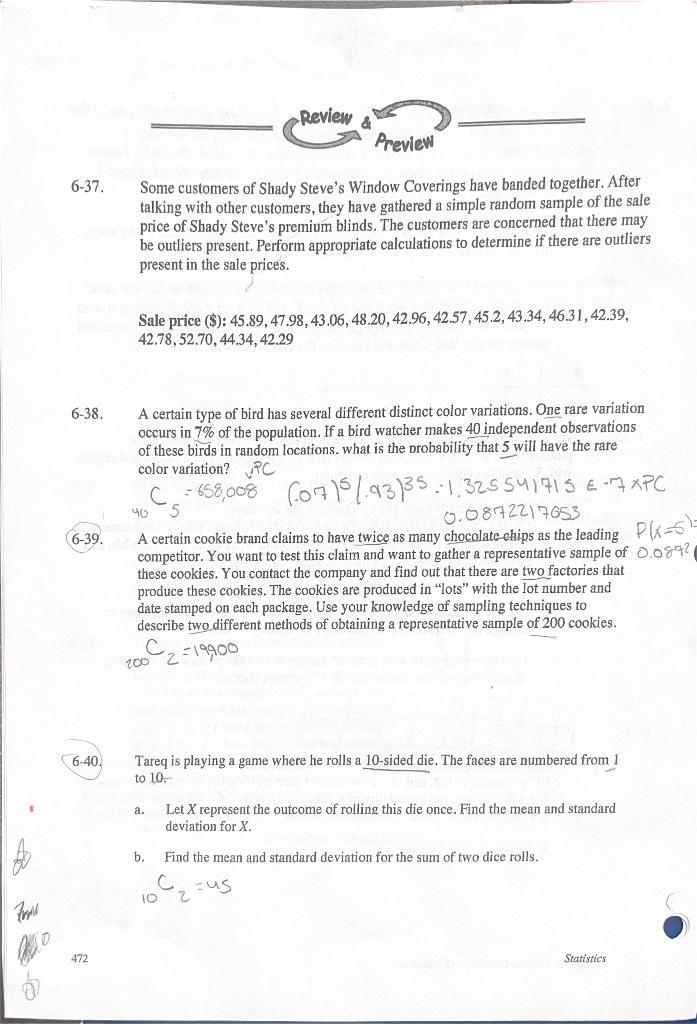 Review & Preview
6-37. Some customers of Shady Steve's Window Coverings have banded together. After
talking with other customers, they have gathered a simple random sample of the sale
price of Shady Steve's premium blinds. The customers are concerned that there may
be outliers present. Perform appropriate calculations to determine if there are outliers
present in the sale prices.
Sale price ($): 45.89, 47.98, 43.06, 48.20, 42.96, 42.57, 45.2, 43.34, 46.31, 42.39,
42.78, 52.70, 44.34, 42.29
6-38. A certain type of bird has several different distinct color variations. One rare variation
occurs in 7% of the population. If a bird watcher makes 40 independent observations
of these birds in random locations. what is the probability that 5 will have the rare
color variation? PC
40 C 5 = 658,008 (.07)5 (.93)35 = 1.325541715 E -7 x PC
0.0872217653
P(x=5)=
0.0872
6-39. A certain cookie brand claims to have twice as many chocolate chips as the leading
competitor. You want to test this claim and want to gather a representative sample of
these cookies. You contact the company and find out that there are two factories that
produce these cookies. The cookies are produced in "lots" with the lot number and
date stamped on each package. Use your knowledge of sampling techniques to
describe two different methods of obtaining a representative sample of 200 cookies.
200 C 2 = 19900
6-40. Tareq is playing a game where he rolls a 10-sided die. The faces are numbered from 1
to 10.
a. Let X represent the outcome of rolling this die once. Find the mean and standard
deviation for X.
b. Find the mean and standard deviation for the sum of two dice rolls.
10 C 2 = 45
472 Statistics